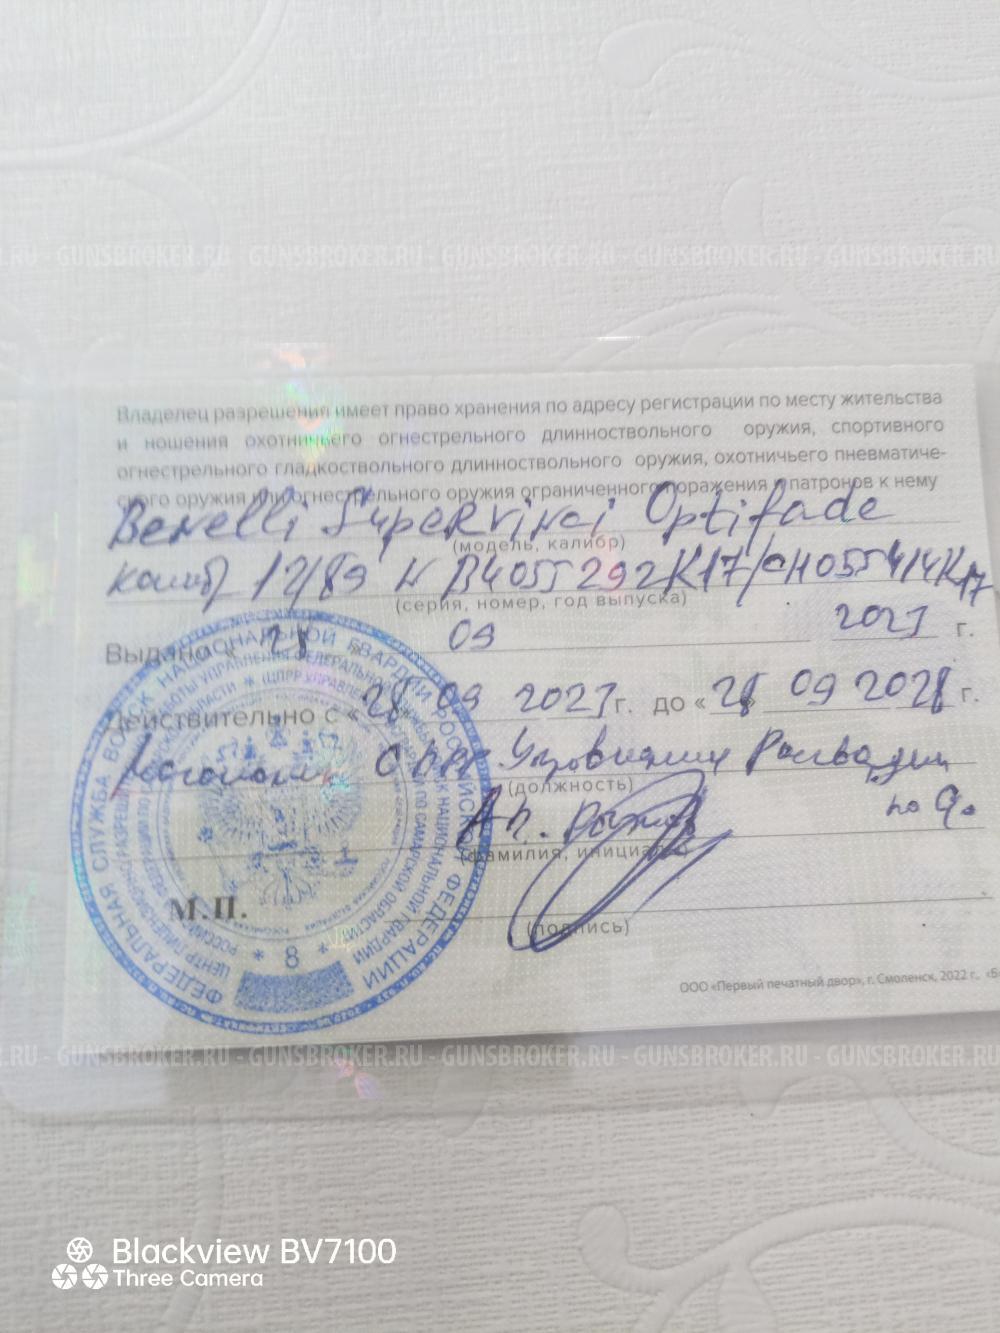 GUNSBROKER.RU - GUNSBROKER.RU - GUNSBROKER.RU - GUNSBROKER.RU - GUNSBROKER.RU
Владелец разрешения имеет право хранения по адресу регистрации по месту жительства
и ношения охотничьего огнестрельного длинноствольного оружия, спортивного
огнестрельного гладкоствольного длинноствольного оружия, охотничьего пневматиче-
ского оружия или огнестрельного оружия ограниченного поражения и патронов к нему
Benelli Optifade
(модель, калибр)
калибр 12/89 N B4055292K17/CH055414K17
(серия, номер, год выпуска)
Выдано « 28 » 09 2023 г.
Действительно с «28» 09 2023 г. до «28» 09 2028 г.
(должность)
по
(фамилия, инициалы)
М.П.
(подпись)
ФЕДЕРАЛЬНАЯ СЛУЖБА ВОЙСК НАЦИОНАЛЬНОЙ ГВАРДИИ РОССИЙСКОЙ ФЕДЕРАЦИИ
* 8 *
ООО «Первый печатный двор», г. Смоленск, 2022 г.,
.RU - GUNSBROKER.RU - GUNSBROKER.RU - GUNSBROKER.RU - GUNSBROKER.RU - GUNSBROKER.RU
Blackview BV7100
Three Camera